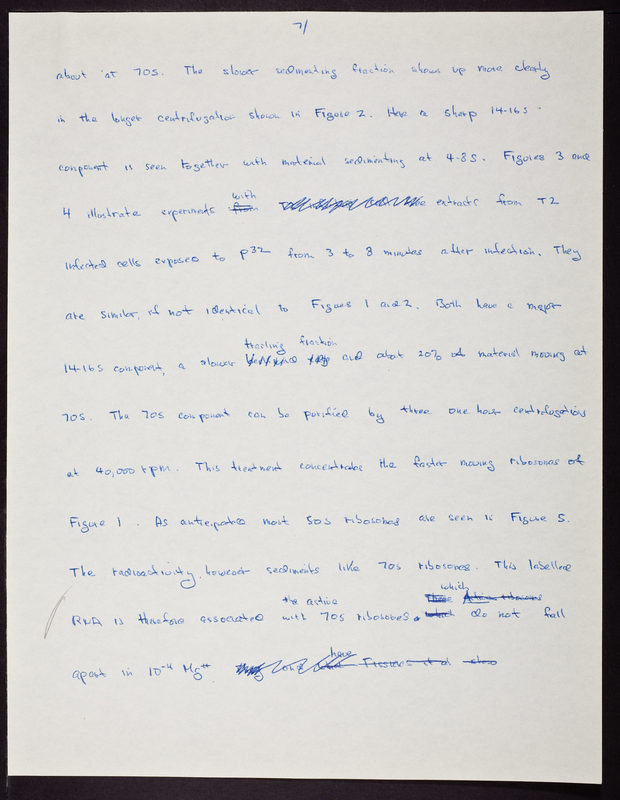 7/
about at 70S. The slower sedimenting fraction shows up more clearly
in the longer centrifugation shown in Figure 2. Here a sharp 14-16 S
component is seen together with material sedimenting at 4-8 S. Figures 3 and
with
4 illustrate experiments from extracts from T2
infected cells exposed to P32 from 3 to 8 minutes after infection. They
are similar, if not identical to Figures 1 and 2. Both have a major
trailing fraction
14-16 S component, a slower and about 20% of material moving at
70S. The 70S component can be purified by three one hour centrifugations
at 40,000 rpm. This treatment concentrates the faster moving ribosomes of
Figure 1. As anticipated most 50S ribosomes are seen in Figure 5.
The radioactivity, however sediments like 70S ribosomes. This labelled
the active These which
RNA is therefore associated with 70S ribosomes which do not fall
have
apart in 10-4 Mg++ and Tissieres et al also